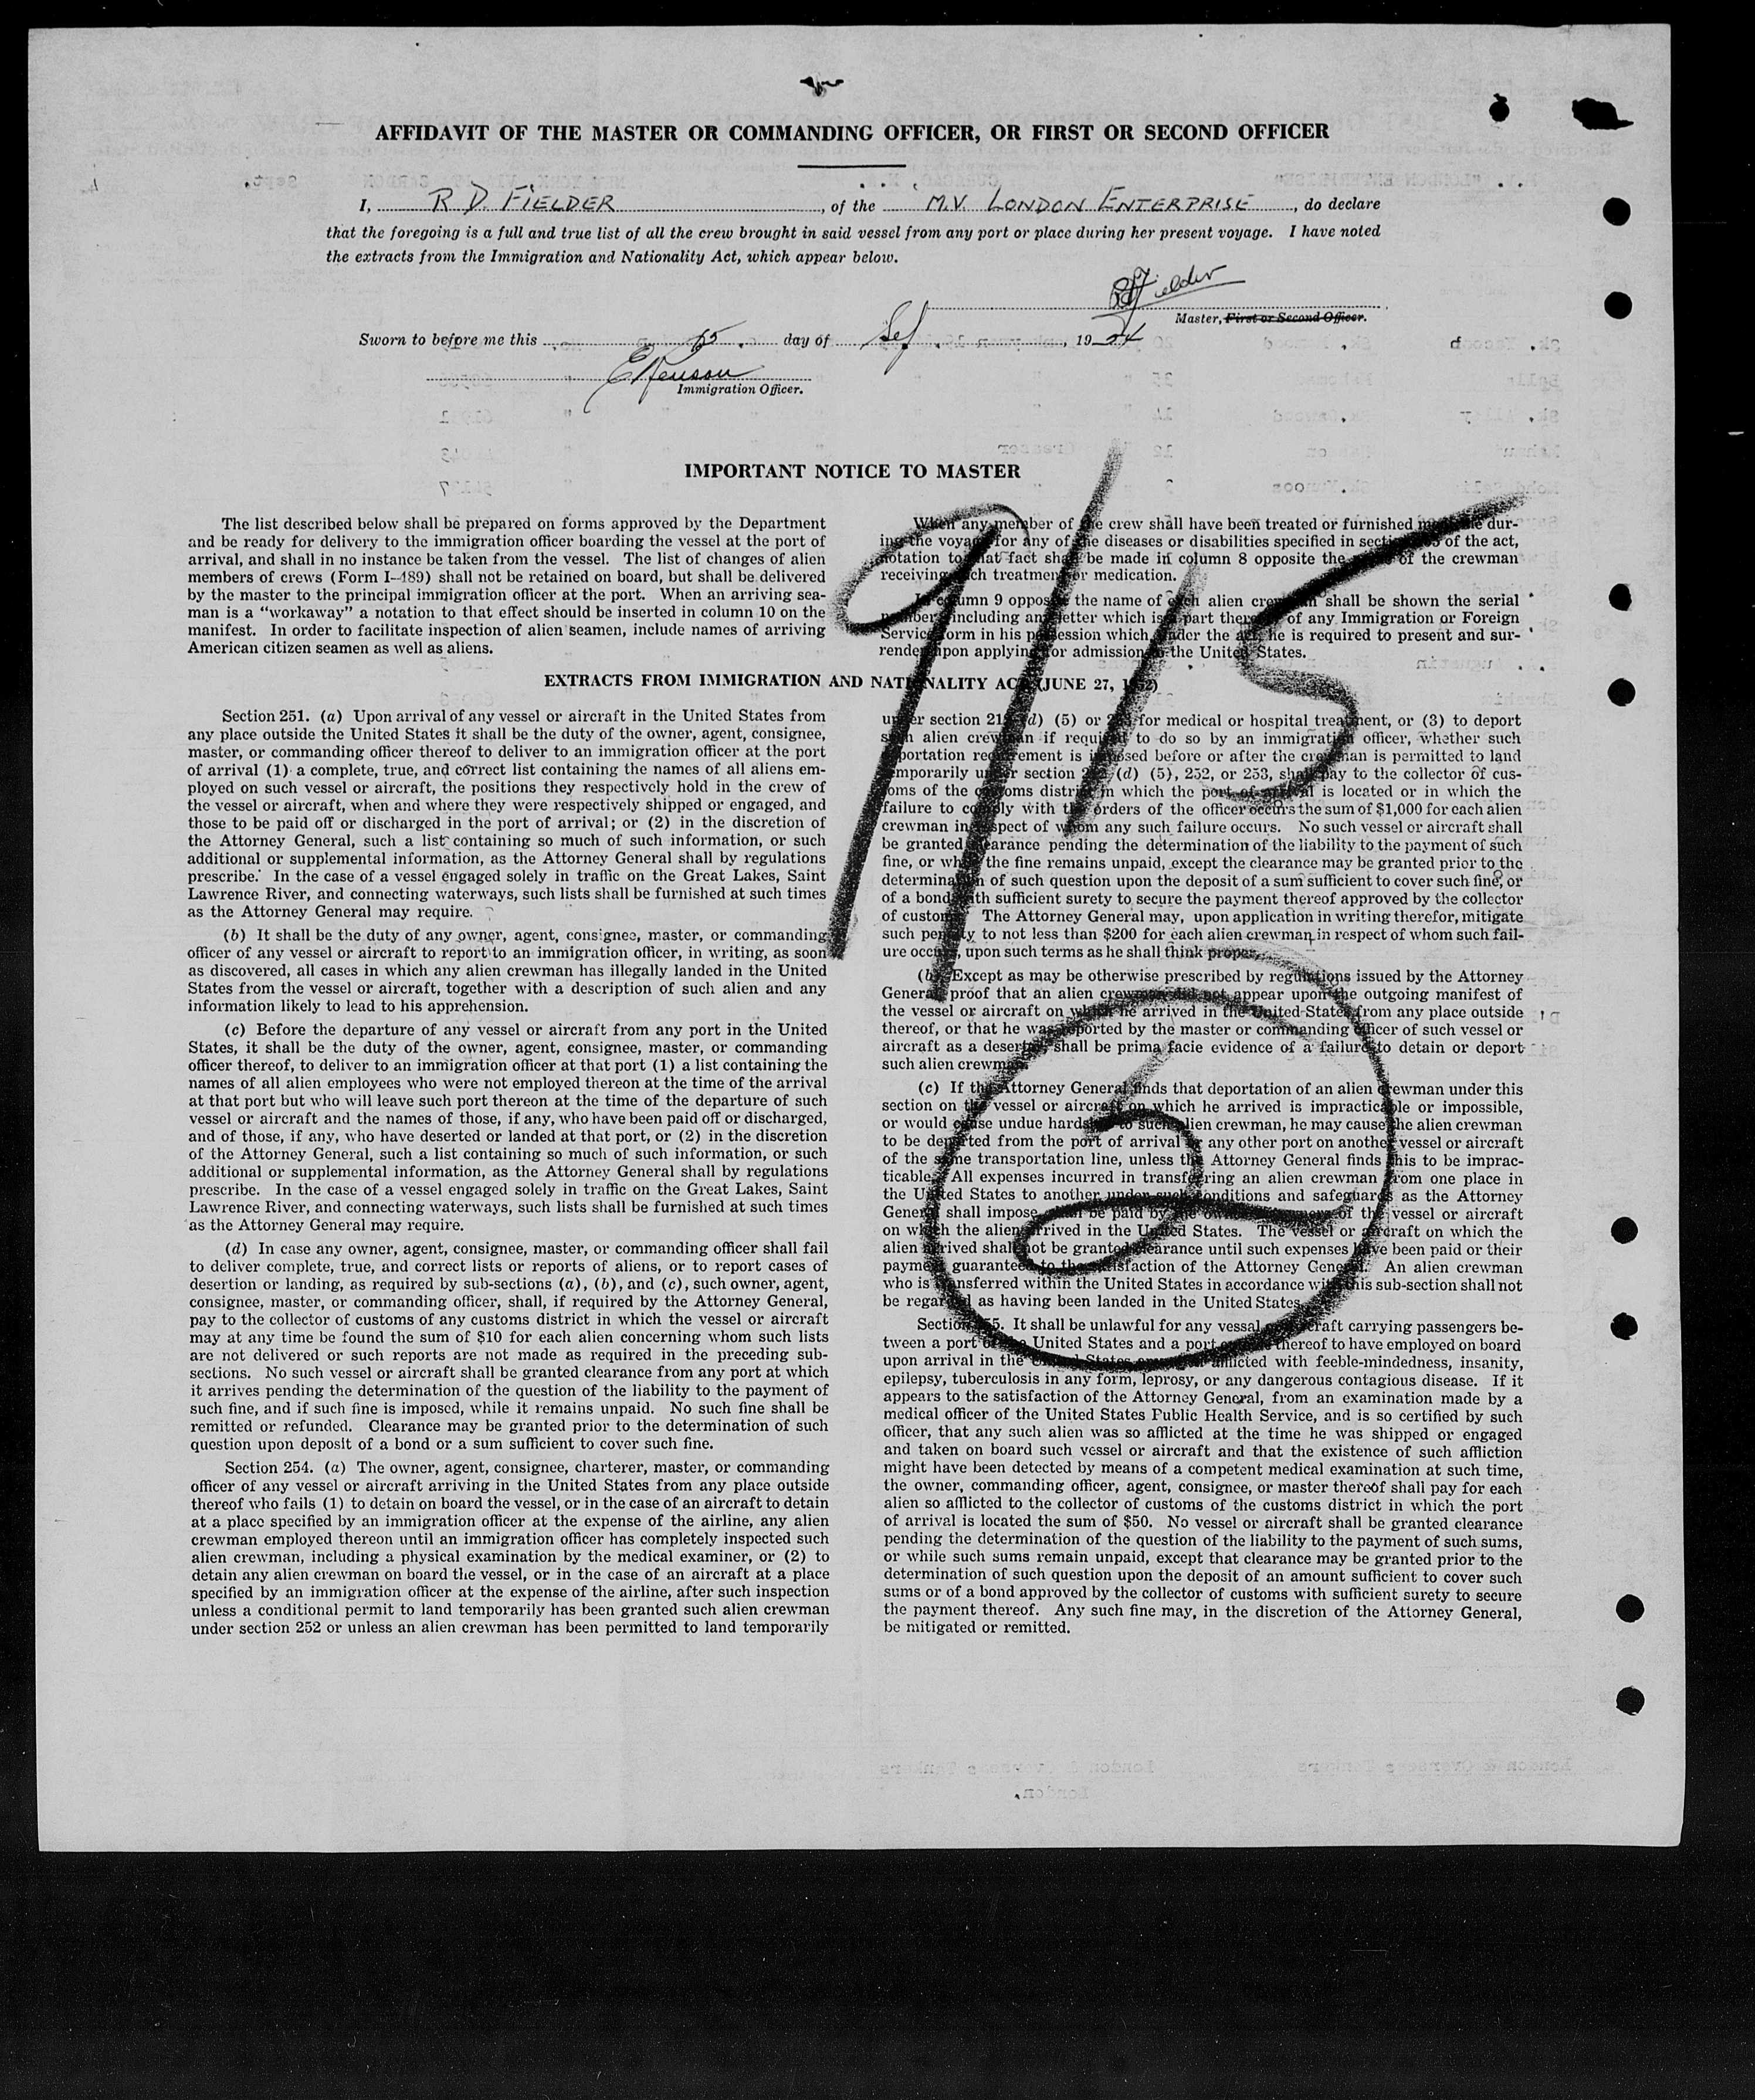 AFFIDAVIT OF THE MASTER OR COMMANDING OFFICER, OR FIRST OR SECOND OFFICER
I, R D. FIELDER, of the M.V. LONDON ENTERPRISE, do declare
that the foregoing is a full and true list of all the crew brought in said vessel from any port or place during her present voyage. I have noted
the extracts from the Immigration and Nationality Act, which appear below.
RDFielder
Master, First or Second Officer.
Sworn to before me this 15 day of Sep, 1954
Immigration Officer.
IMPORTANT NOTICE TO MASTER
The list described below shall be prepared on forms approved by the Department
and be ready for delivery to the immigration officer boarding the vessel at the port of
arrival, and shall in no instance be taken from the vessel. The list of changes of alien
members of crews (Form I-489) shall not be retained on board, but shall be delivered
by the master to the principal immigration officer at the port. When an arriving sea-
man is a "workaway" a notation to that effect should be inserted in column 10 on the
manifest. In order to facilitate inspection of alien seamen, include names of arriving
American citizen seamen as well as aliens.
When any member of the crew shall have been treated or furnished medicine dur-
ing the voyage for any of the diseases or disabilities specified in section of the act,
notation to that fact shall be made in column 8 opposite the name of the crewman
receiving such treatment or medication.
In column 9 opposite the name of each alien crewman shall be shown the serial
number, including any letter which is a part thereof of any Immigration or Foreign
Service form in his possession which, under the act, he is required to present and sur-
render upon applying for admission to the United States.
9/15
EXTRACTS FROM IMMIGRATION AND NATIONALITY ACT (JUNE 27, 1952)
Section 251. (a) Upon arrival of any vessel or aircraft in the United States from
any place outside the United States it shall be the duty of the owner, agent, consignee,
master, or commanding officer thereof to deliver to an immigration officer at the port
of arrival (1) a complete, true, and correct list containing the names of all aliens em-
ployed on such vessel or aircraft, the positions they respectively hold in the crew of
the vessel or aircraft, when and where they were respectively shipped or engaged, and
those to be paid off or discharged in the port of arrival; or (2) in the discretion of
the Attorney General, such a list containing so much of such information, or such
additional or supplemental information, as the Attorney General shall by regulations
prescribe. In the case of a vessel engaged solely in traffic on the Great Lakes, Saint
Lawrence River, and connecting waterways, such lists shall be furnished at such times
as the Attorney General may require.
(b) It shall be the duty of any owner, agent, consignee, master, or commanding
officer of any vessel or aircraft to report to an immigration officer, in writing, as soon
as discovered, all cases in which any alien crewman has illegally landed in the United
States from the vessel or aircraft, together with a description of such alien and any
information likely to lead to his apprehension.
(c) Before the departure of any vessel or aircraft from any port in the United
States, it shall be the duty of the owner, agent, consignee, master, or commanding
officer thereof, to deliver to an immigration officer at that port (1) a list containing the
names of all alien employees who were not employed thereon at the time of the arrival
at that port but who will leave such port thereon at the time of the departure of such
vessel or aircraft and the names of those, if any, who have been paid off or discharged,
and of those, if any, who have deserted or landed at that port, or (2) in the discretion
of the Attorney General, such a list containing so much of such information, or such
additional or supplemental information, as the Attorney General shall by regulations
prescribe. In the case of a vessel engaged solely in traffic on the Great Lakes, Saint
Lawrence River, and connecting waterways, such lists shall be furnished at such times
as the Attorney General may require.
(d) In case any owner, agent, consignee, master, or commanding officer shall fail
to deliver complete, true, and correct lists or reports of aliens, or to report cases of
desertion or landing, as required by sub-sections (a), (b), and (c), such owner, agent,
consignee, master, or commanding officer, shall, if required by the Attorney General,
pay to the collector of customs of any customs district in which the vessel or aircraft
may at any time be found the sum of $10 for each alien concerning whom such lists
are not delivered or such reports are not made as required in the preceding sub-
sections. No such vessel or aircraft shall be granted clearance from any port at which
it arrives pending the determination of the question of the liability to the payment of
such fine, and if such fine is imposed, while it remains unpaid. No such fine shall be
remitted or refunded. Clearance may be granted prior to the determination of such
question upon deposit of a bond or a sum sufficient to cover such fine.
Section 254. (a) The owner, agent, consignee, charterer, master, or commanding
officer of any vessel or aircraft arriving in the United States from any place outside
thereof who fails (1) to detain on board the vessel, or in the case of an aircraft to detain
at a place specified by an immigration officer at the expense of the airline, any alien
crewman employed thereon until an immigration officer has completely inspected such
alien crewman, including a physical examination by the medical examiner, or (2) to
detain any alien crewman on board the vessel, or in the case of an aircraft at a place
specified by an immigration officer at the expense of the airline, after such inspection
unless a conditional permit to land temporarily has been granted such alien crewman
under section 252 or unless an alien crewman has been permitted to land temporarily
under section 212 (d) (5) or 253 for medical or hospital treatment, or (3) to deport
such alien crewman if required to do so by an immigration officer, whether such
deportation requirement is imposed before or after the crewman is permitted to land
temporarily under section 212 (d) (5), 252, or 253, shall pay to the collector of cus-
toms of the customs district in which the port of arrival is located or in which the
failure to comply with the orders of the officer occurs the sum of $1,000 for each alien
crewman in respect of whom any such failure occurs. No such vessel or aircraft shall
be granted clearance pending the determination of the liability to the payment of such
fine, or while the fine remains unpaid, except the clearance may be granted prior to the
determination of such question upon the deposit of a sum sufficient to cover such fine, or
of a bond with sufficient surety to secure the payment thereof approved by the collector
of customs. The Attorney General may, upon application in writing therefor, mitigate
such penalty to not less than $200 for each alien crewman in respect of whom such fail-
ure occurs, upon such terms as he shall think proper.
(b) Except as may be otherwise prescribed by regulations issued by the Attorney
General, proof that an alien crewman did not appear upon the outgoing manifest of
the vessel or aircraft on which he arrived in the United States from any place outside
thereof, or that he was reported by the master or commanding officer of such vessel or
aircraft as a deserter, shall be prima facie evidence of a failure to detain or deport
such alien crewman.
(c) If the Attorney General finds that deportation of an alien crewman under this
section on the vessel or aircraft on which he arrived is impracticable or impossible,
or would cause undue hardship to such alien crewman, he may cause the alien crewman
to be deported from the port of arrival or any other port on another vessel or aircraft
of the same transportation line, unless the Attorney General finds this to be imprac-
ticable. All expenses incurred in transferring an alien crewman from one place in
the United States to another under such conditions and safeguards as the Attorney
General shall impose, shall be paid by the owner or owners of the vessel or aircraft
on which the alien arrived in the United States. The vessel or aircraft on which the
alien arrived shall not be granted clearance until such expenses have been paid or their
payment guaranteed to the satisfaction of the Attorney General. An alien crewman
who is transferred within the United States in accordance with this sub-section shall not
be regarded as having been landed in the United States.
2
Section 255. It shall be unlawful for any vessal or aircraft carrying passengers be-
tween a port of the United States and a port outside thereof to have employed on board
upon arrival in the United States any alien afflicted with feeble-mindedness, insanity,
epilepsy, tuberculosis in any form, leprosy, or any dangerous contagious disease. If it
appears to the satisfaction of the Attorney General, from an examination made by a
medical officer of the United States Public Health Service, and is so certified by such
officer, that any such alien was so afflicted at the time he was shipped or engaged
and taken on board such vessel or aircraft and that the existence of such affliction
might have been detected by means of a competent medical examination at such time,
the owner, commanding officer, agent, consignee, or master thereof shall pay for each
alien so afflicted to the collector of customs of the customs district in which the port
of arrival is located the sum of $50. No vessel or aircraft shall be granted clearance
pending the determination of the question of the liability to the payment of such sums,
or while such sums remain unpaid, except that clearance may be granted prior to the
determination of such question upon the deposit of an amount sufficient to cover such
sums or of a bond approved by the collector of customs with sufficient surety to secure
the payment thereof. Any such fine may, in the discretion of the Attorney General,
be mitigated or remitted.